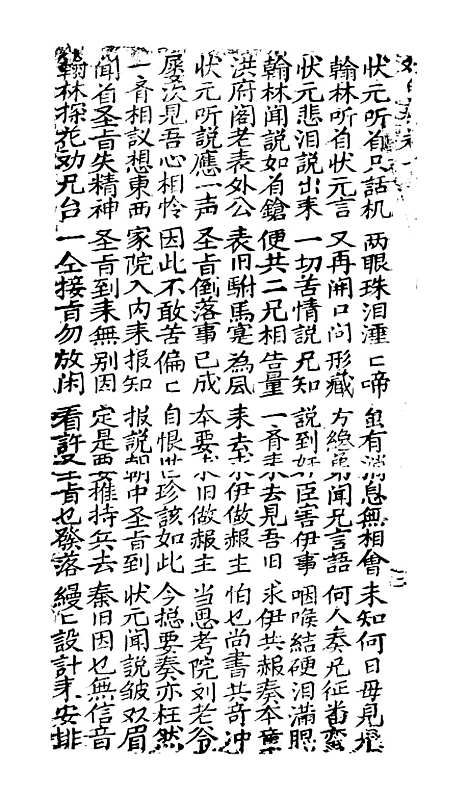 状元听肖只話机 两眼珠泪湩匕啼 虽有消息無相會 未知何日毋見児
翰林听肖状元言 又再開口问形藏 方絶弟聞兄言語 何人奏兄征畨蛮
状元悲泪説出来 一切苦情説兄知 説到奸臣害伊事 咽喉結硬泪满眼
翰林聞説如肖鎗 便共二兄相告量 一斉来去見吾旧 求伊共赧奏本章
洪府阁老表外公 表旧駙馬寔為凨 来去求伊做赧主 怕乜尚書共奇冲
状元听説應一声 圣旨倒落事已成 夲要求旧做赧主 当思考院刘老爷
屡次見吾心相怜 因此不敢苦偏匕 自恨世珍該如此 今摠要奏亦枉然
一斉相议想東西 家院入内来报知 报説朝中圣旨到 状元聞説皱双眉
聞肖圣旨失精神 圣旨到来無别因 定是要推持兵去 秦旧因乜無信音
翰林探花劝兄台 一仝接旨勿放闲 看許圣旨乜發落 縵匕設計来安排